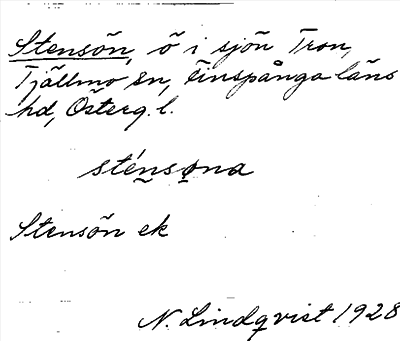 Stensön, ö i sjön Tron,
Tjällmo sn, Finspånga läns
hd, Österg. l.
sténsǫna
Stensön ek
N. Lindqvist 1928